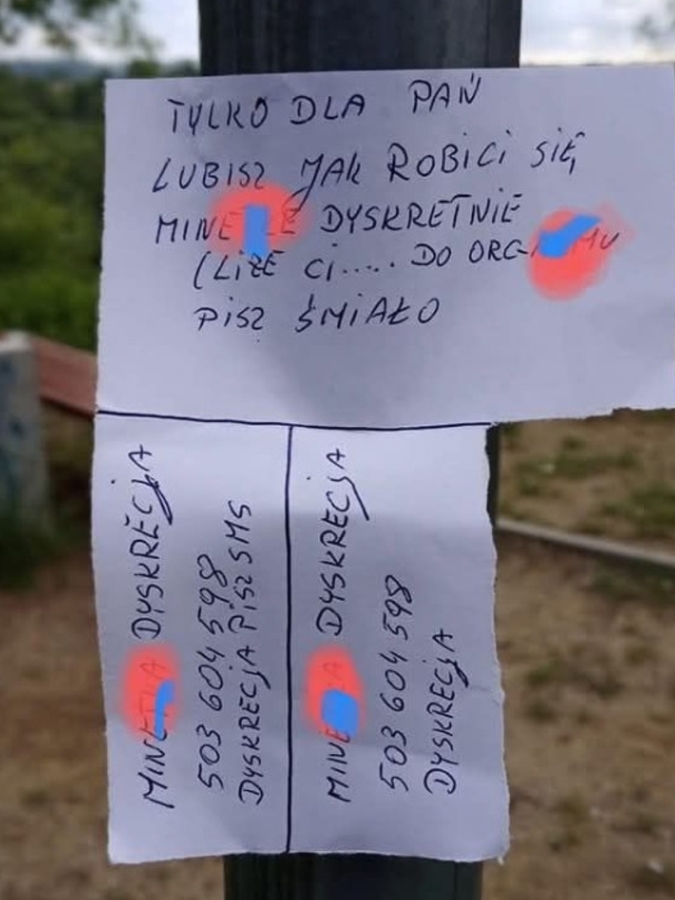 TYLKO DLA PAŃ
LUBISZ JAK ROBICI SIĘ,
DYSKRETNIE
(LIŻE CI..... DO
PISZ ŚMIAŁO
DYSKRECJA
503 604 598
DYSKRECJA PISZ SMS
DYSKRECJA
503 604 598
DYSKRECJA